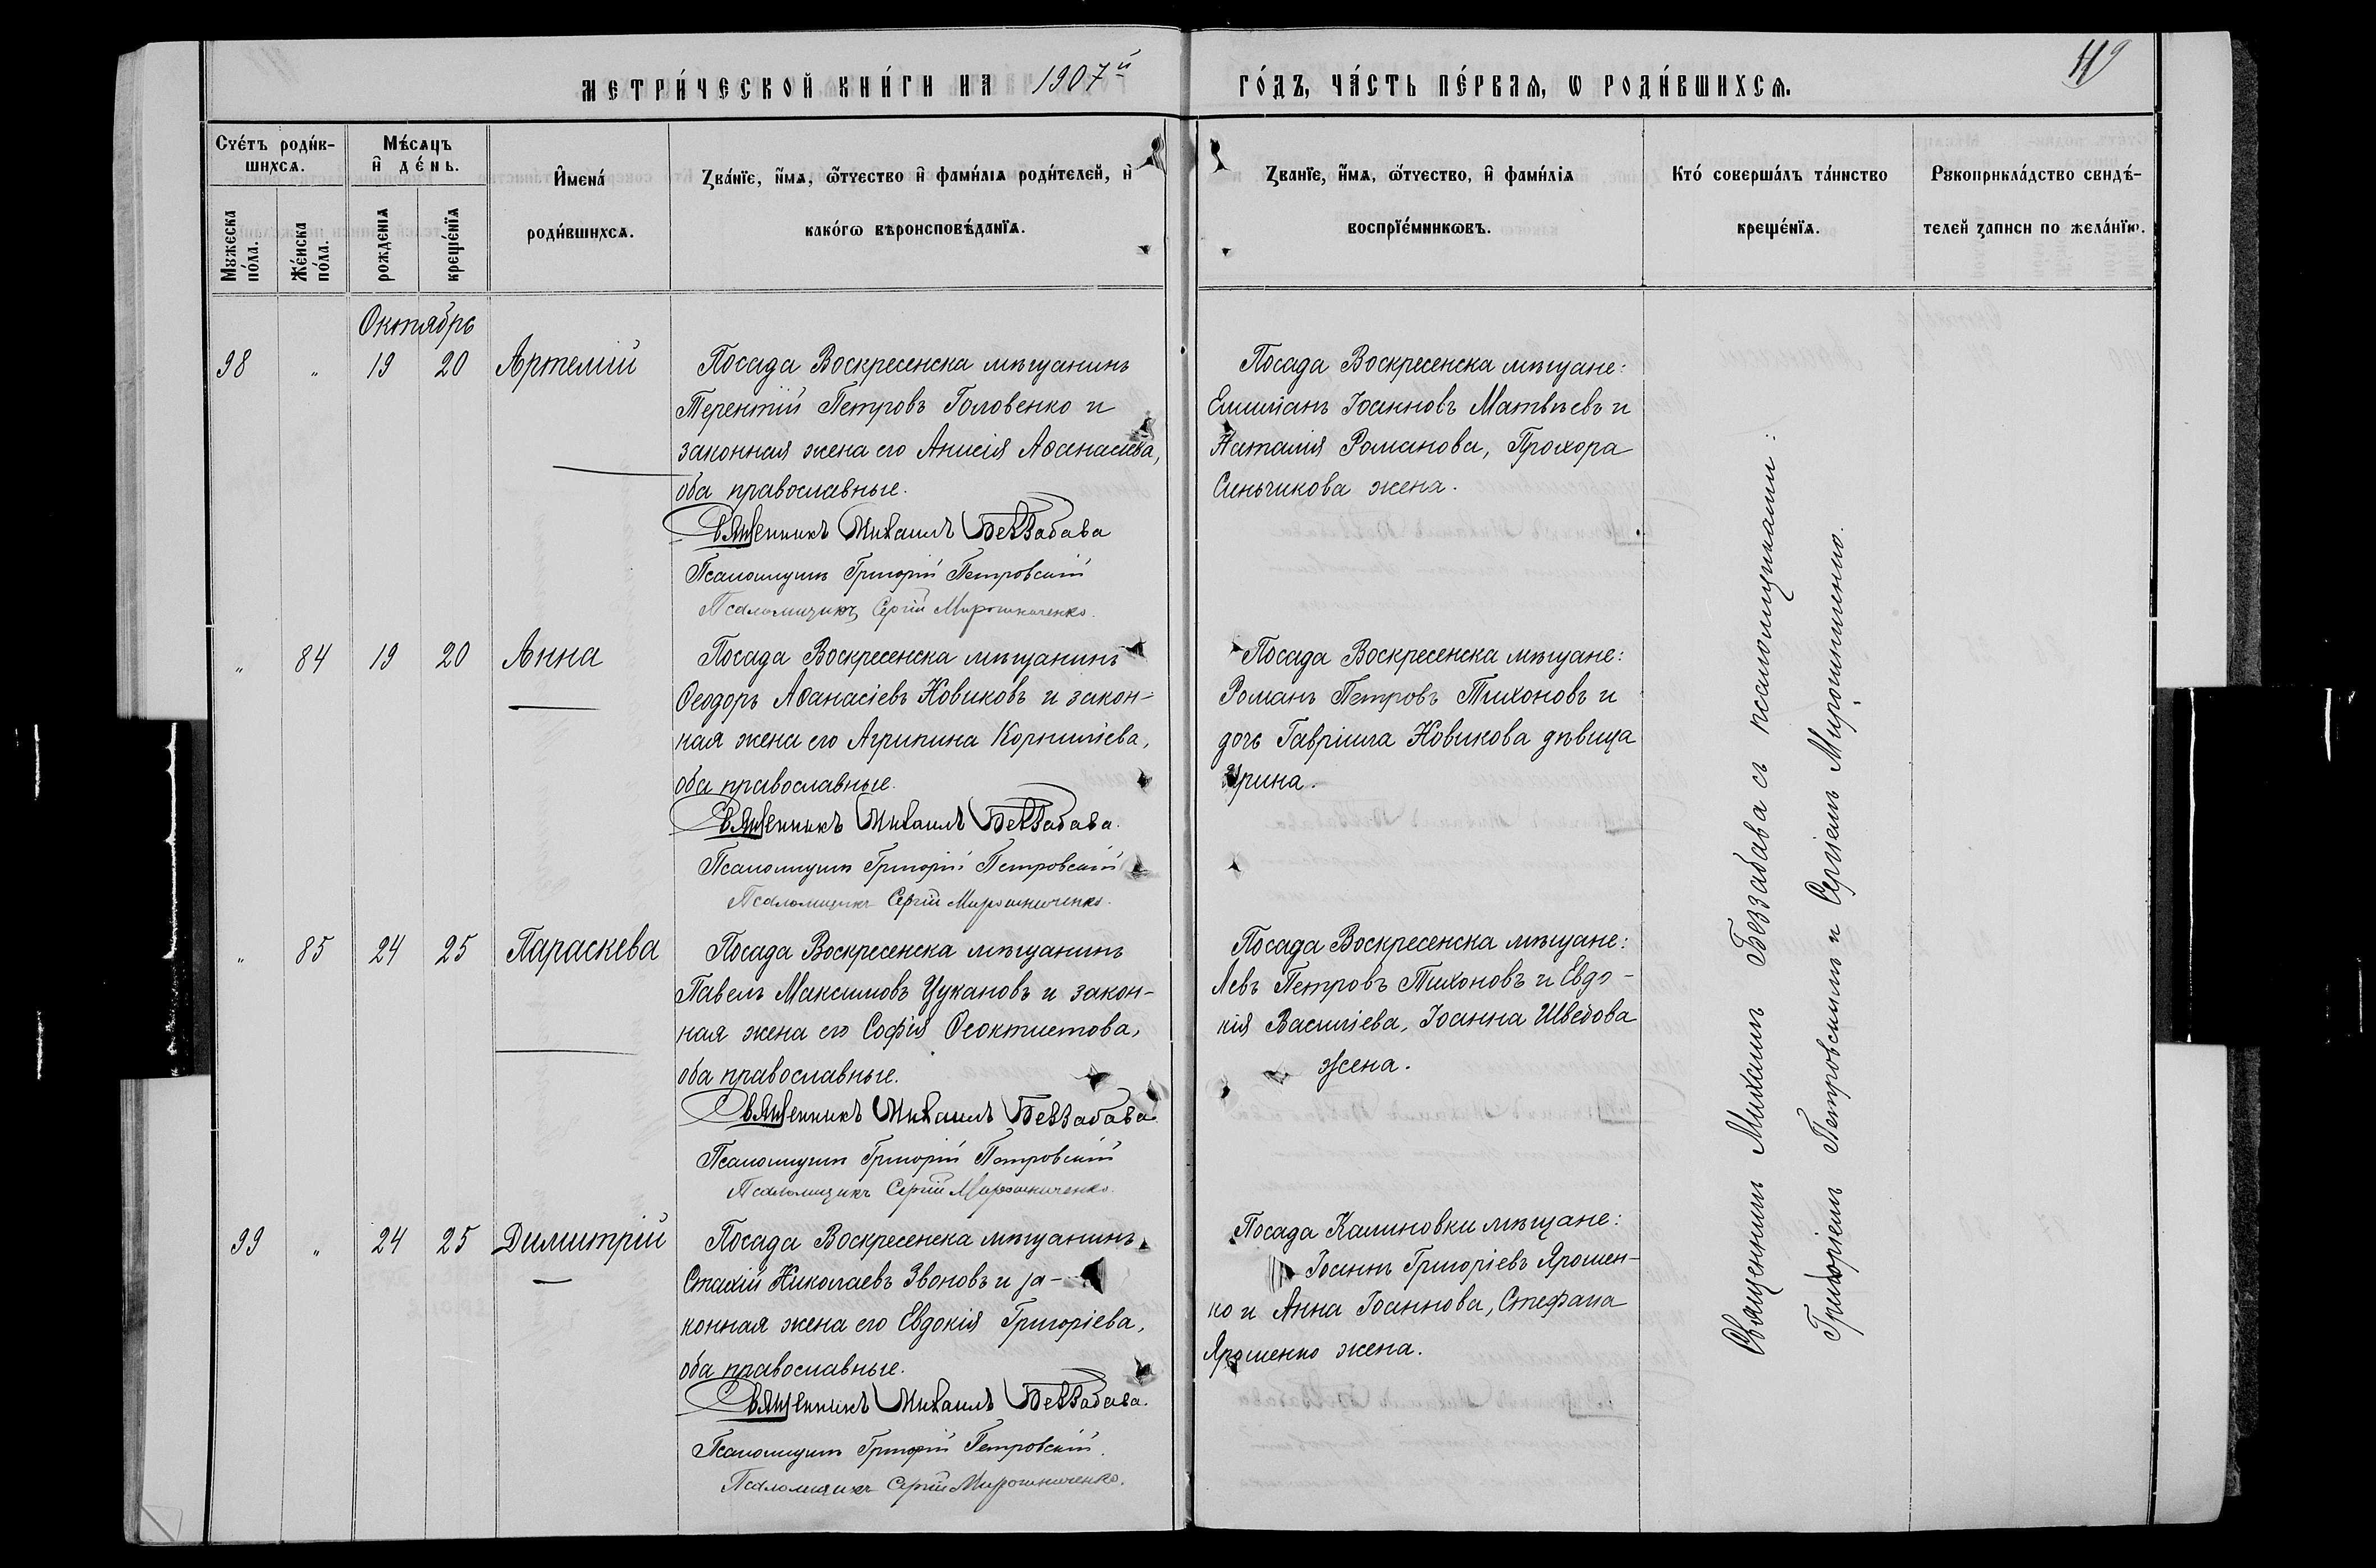 МЕТРИ́ЧЕСКОЙ КНИ́ГИ НА 1907й ГО́ДЪ, ЧА́СТЬ ПЕ́РВАѦ, Ѡ РОДИ́ВШИХСѦ.
Сче́тъ роди́в-
шихсѧ.
Мѣ́сѧцъ
и҆ де́нь.
Мꙋжеска
по́ла.
Же́нска
по́ла.
рожденїѧ
креще́нїѧ
И҆мена́
роди́вшихсѧ.
Ꙁва́нїе, и҆́мѧ, ѻ҆́тчество и҆ фами́лїѧ роди́телей, и҆
како́гѡ вѣроисповѣ́данїѧ.
Ꙁванїе, и҆́мѧ, ѻ҆́тчество, и҆ фами́лїѧ
воспрїе́мникѡвъ.
Кто́ соверша́лъ та́инство
креще́нїѧ.
Рꙋкоприкла́дство свидѣ́-
телей ꙁаписи по жела́нїю.
Октябрь
98 " 19 20 Артемій
Посада Воскресенска мѣщанинъ
Терентій Петровъ Головенко и
законная жена его Анисія Аѳанасіева,
оба православные.
Священникъ Михаилъ Беззабава
Псаломщикъ Григорій Петровскій
Псаломщикъ Сергій Мирошниченко.
Посада Воскресенска мѣщане:
Емиліанъ Іоанновъ Матвѣевъ и
Наталія Романова, Прохора
Синьчикова жена.
" 84 19 20 Анна
Посада Воскресенска мѣщанинъ
Ѳеодоръ Аѳанасіевъ Новиковъ и закон-
ная жена его Агрипина Корниліева,
оба православные.
Священникъ Михаилъ Беззабава.
Псаломщикъ Григорій Петровскій
Псаломщикъ Сергій Мирошниченко.
Посада Воскресенска мѣщане:
Романъ Петровъ Тихоновъ и
дочь Гавріила Новикова дѣвица
Ирина.
" 85 24 25 Параскева
Посада Воскресенска мѣщанинъ
Павелъ Максимовъ Цукановъ и закон-
ная жена его Софія Ѳеоктистова,
оба православные.
Священникъ Михаилъ Беззабава
Псаломщикъ Григорій Петровскій
Псаломщикъ Сергій Мирошниченко.
Посада Воскресенска мѣщане:
Левъ Петровъ Тихоновъ и Евдо-
кія Василіева, Іоанна Шведова
жена.
99 " 24 25 Димитрій
Посада Воскресенска мѣщанинъ
Стахій Николаевъ Звоновъ и за-
конная жена его Евдокія Григоріева,
оба православные.
Священникъ Михаилъ Беззабава.
Псаломщикъ Григорій Петровскій.
Псаломщикъ Сергій Мирошниченко.
Посада Калиновки мѣщане:
Іоаннъ Григоріевъ Ярошен-
ко и Анна Іоаннова, Стефана
Ярошенко жена.
Священникъ Михаилъ Беззабава съ псаломщиками:
Григоріемъ Петровскимъ и Сергіемъ Мирошниченко.